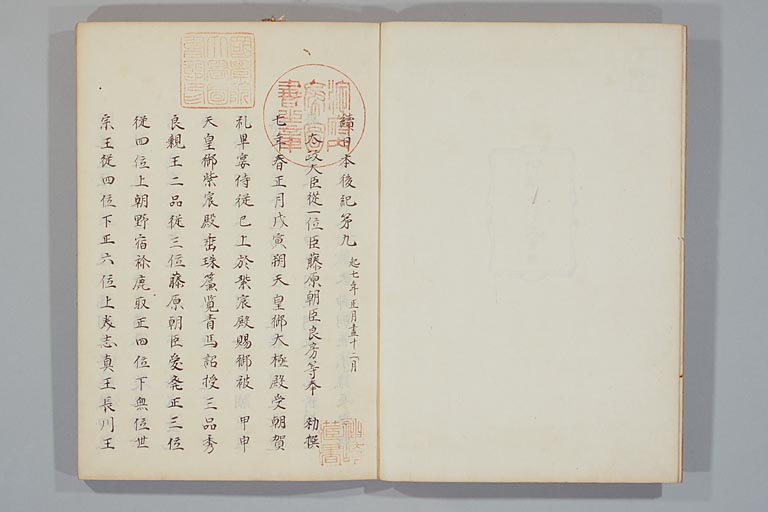 續日本後紀第九 起七年正月盡十二月
太政大臣從一位臣藤原朝臣良房等奉 勅撰
七年春正月戊寅朔天皇御大極殿受朝賀
礼畢宴侍從已上於紫宸殿賜御被 甲申
天皇御紫宸殿垂珠簾覧青馬詔授三品秀
良親王二品從三位藤原朝臣愛發正三位
從四位上朝野宿祢鹿取正四位下無位世
宗王從四位下正六位上岑志真王長川王